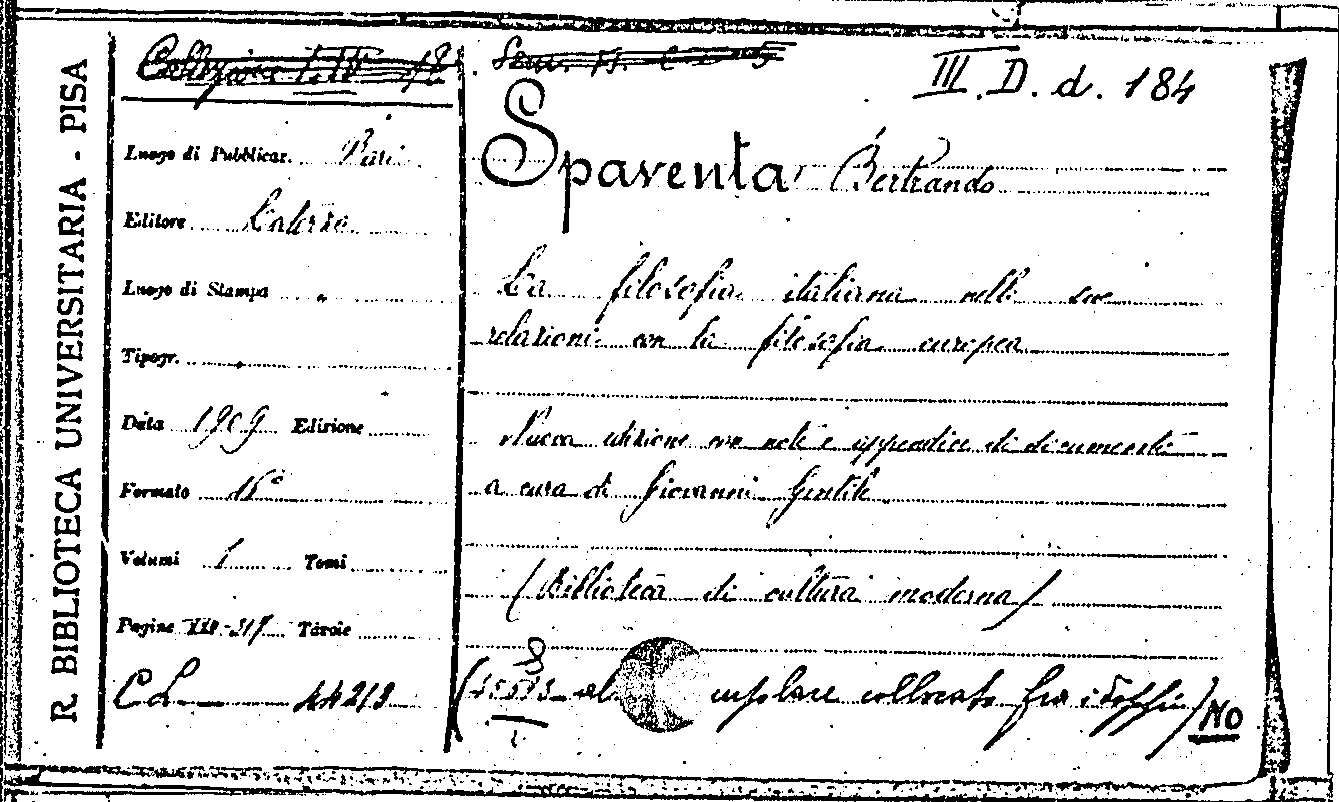 R. BIBLIOTECA UNIVERSITARIA - PISA
III. D. d. 184
Spaventa Bertrando
Luogo di Pubblicaz. Bari
Editore Laterza
Luogo di Stampa "
Tipogr. "
Data 1909 Edizione
Formato 16°
Volumi 1 Tomi
Pagine Tavole
La filosofia italiana nelle sue
relazioni con la filosofia europea
Nuova edizione con note e appendice di documenti
a cura di Giovanni Gentile
(Biblioteca di cultura moderna)
collocato fra i doppi)
NO